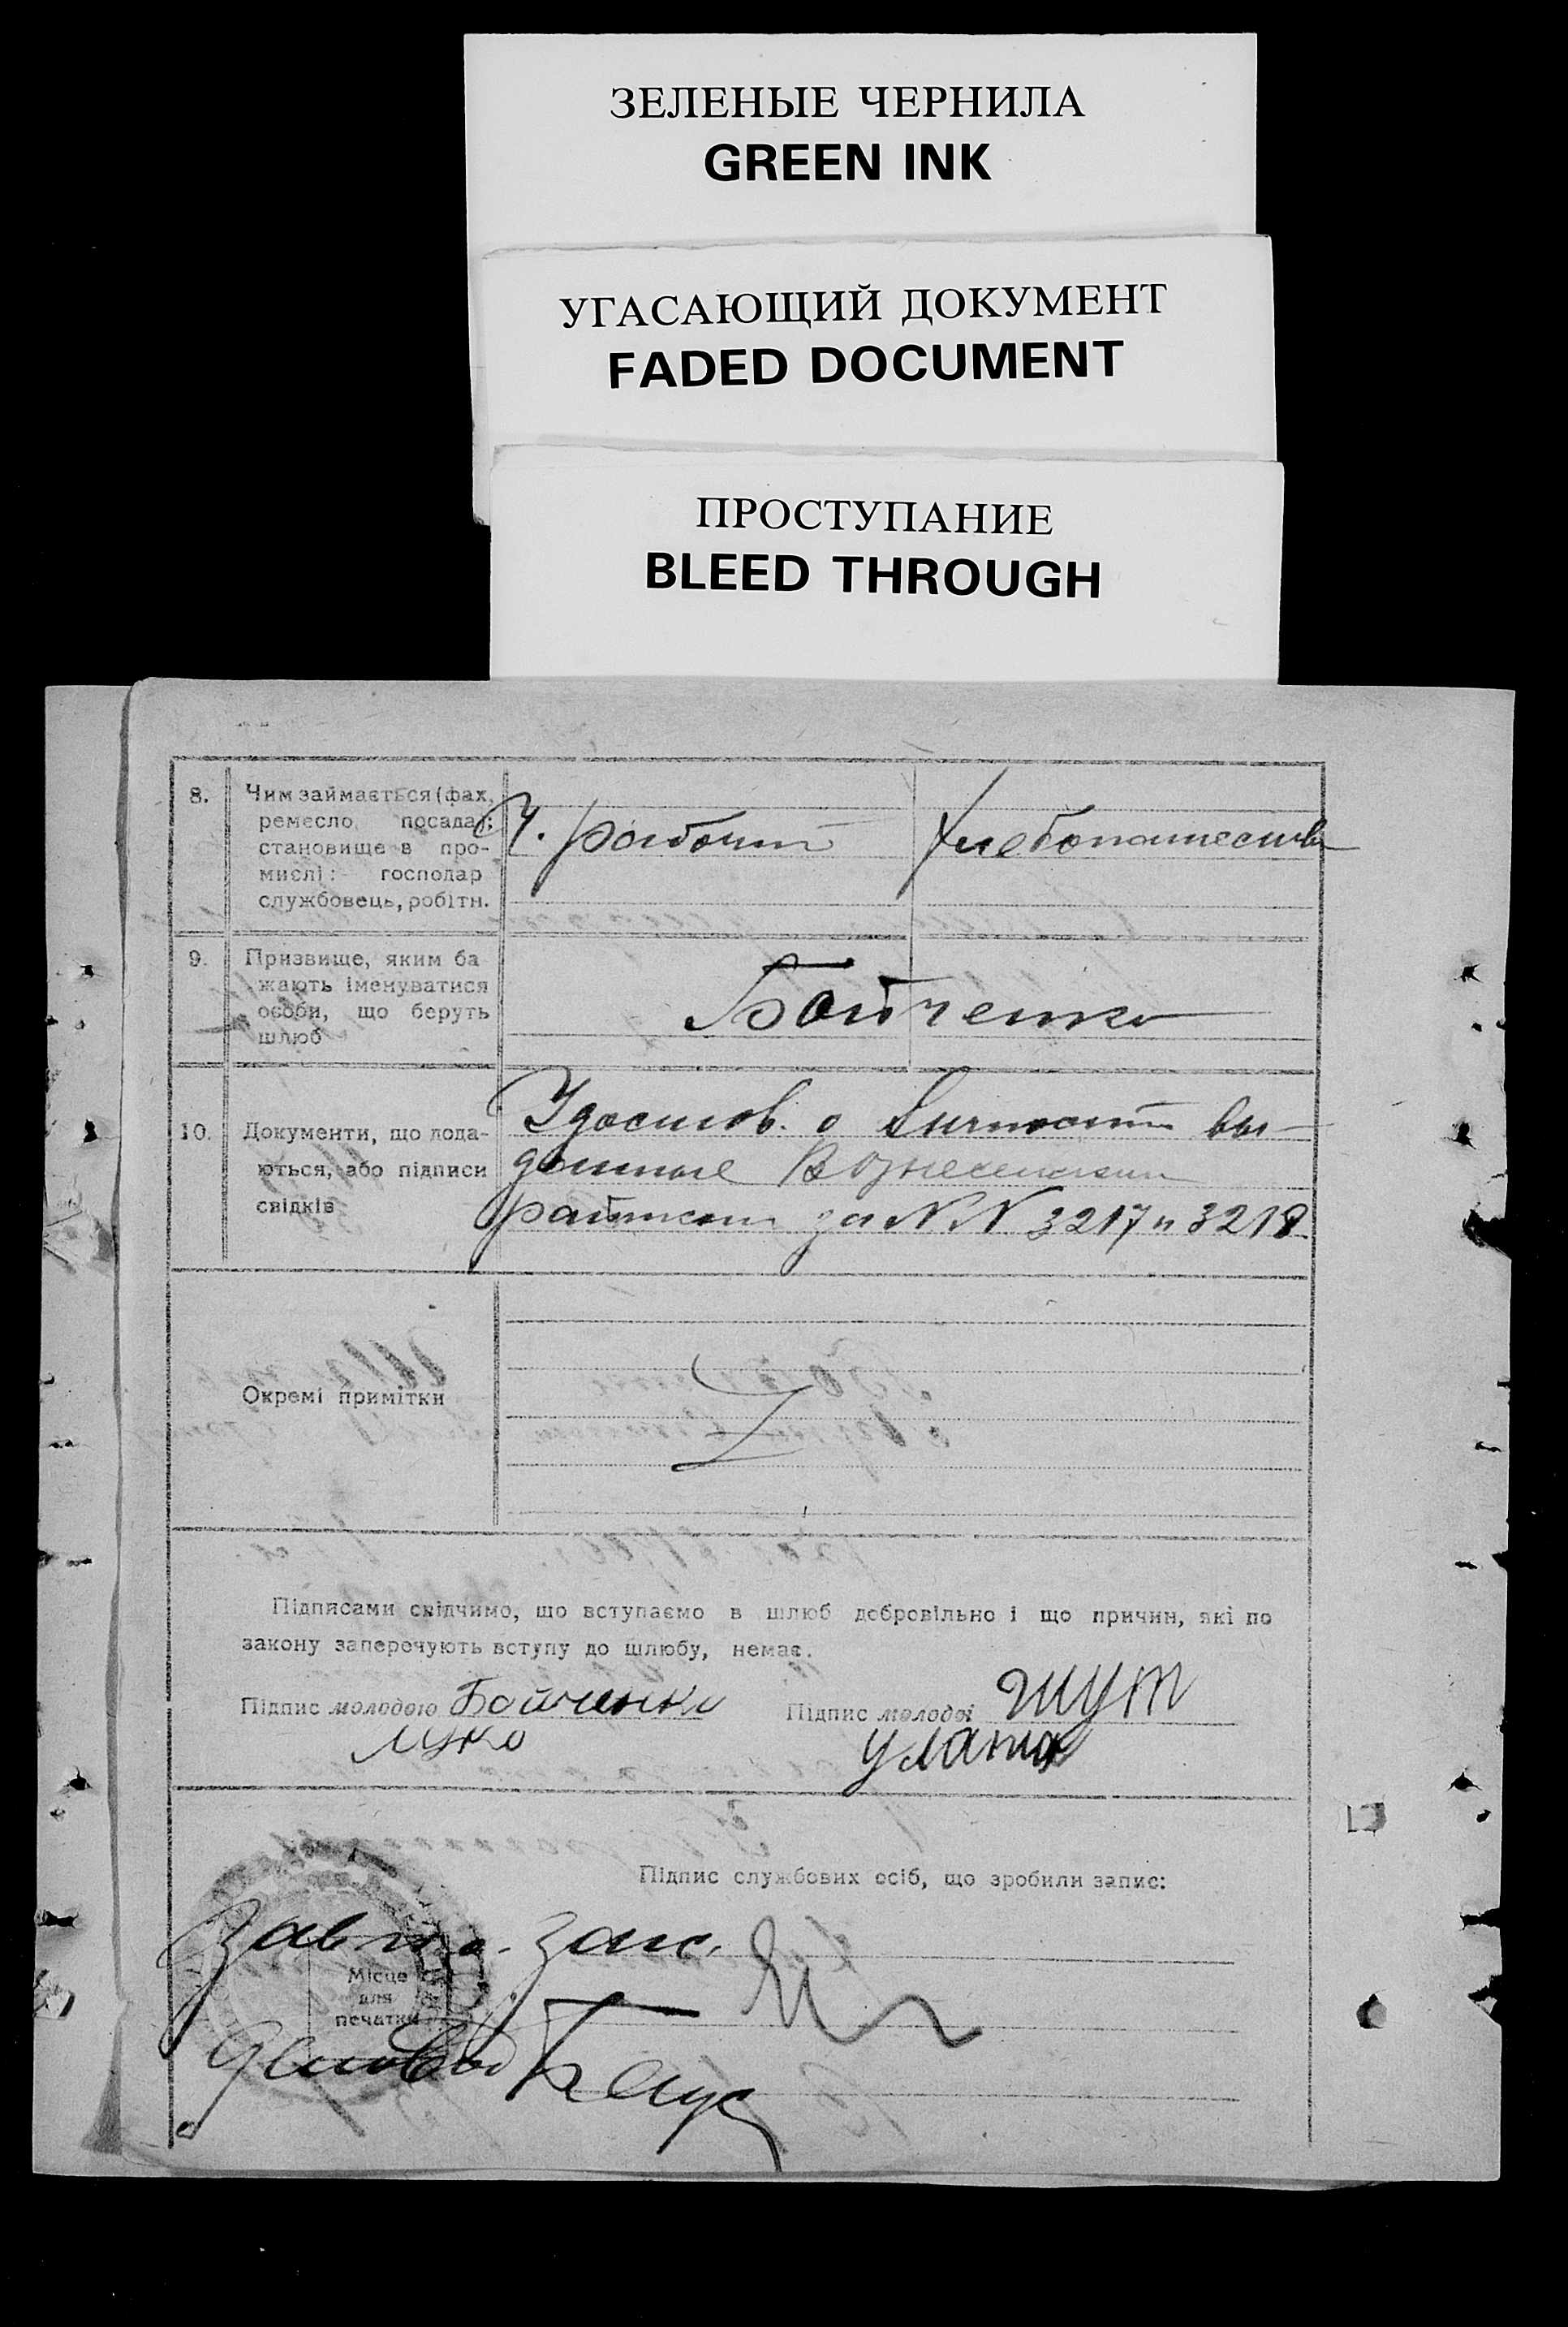 ЗЕЛЕНЫЕ ЧЕРНИЛА
GREEN INK
УГАСАЮЩИЙ ДОКУМЕНТ
FADED DOCUMENT
ПРОСТУПАНИЕ
BLEED THROUGH
8.
Чим займається (фах,
ремесло, посада);
становище в про-
мислі: господар
службовець, робітн.
Ч. рабочий
Хлебопашество
9.
Призвище, яким ба
жають іменуватися
особи, що беруть
шлюб
Бойченко
10.
Документи, що пода-
ються, або підписи
свідків
Удостов. о личности вы-
данные Вознесенским
райисп за NN 3217 и 3218
Окремі примітки
Підписами свідчимо, що вступаємо в шлюб добровільно і що причин, які по
закону заперечують вступу до шлюбу, немає.
Підпис молодого Бойченко
Підпис молодої Шут
Підпис службових осіб, що зробили запис:
Зав загс.
Місце
для
печатки
Деловод